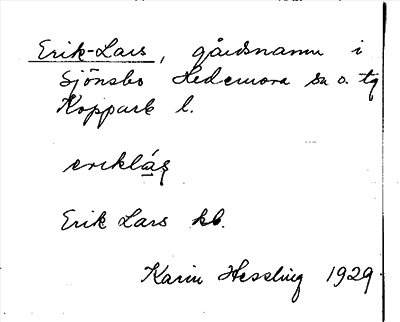 Erik-Lars, gårdsnamn i
Sjönsbo Hedemora sn o. tg
Kopparb l.
erikla̱s
Erik Lars kb.
Karin Hessling 1929